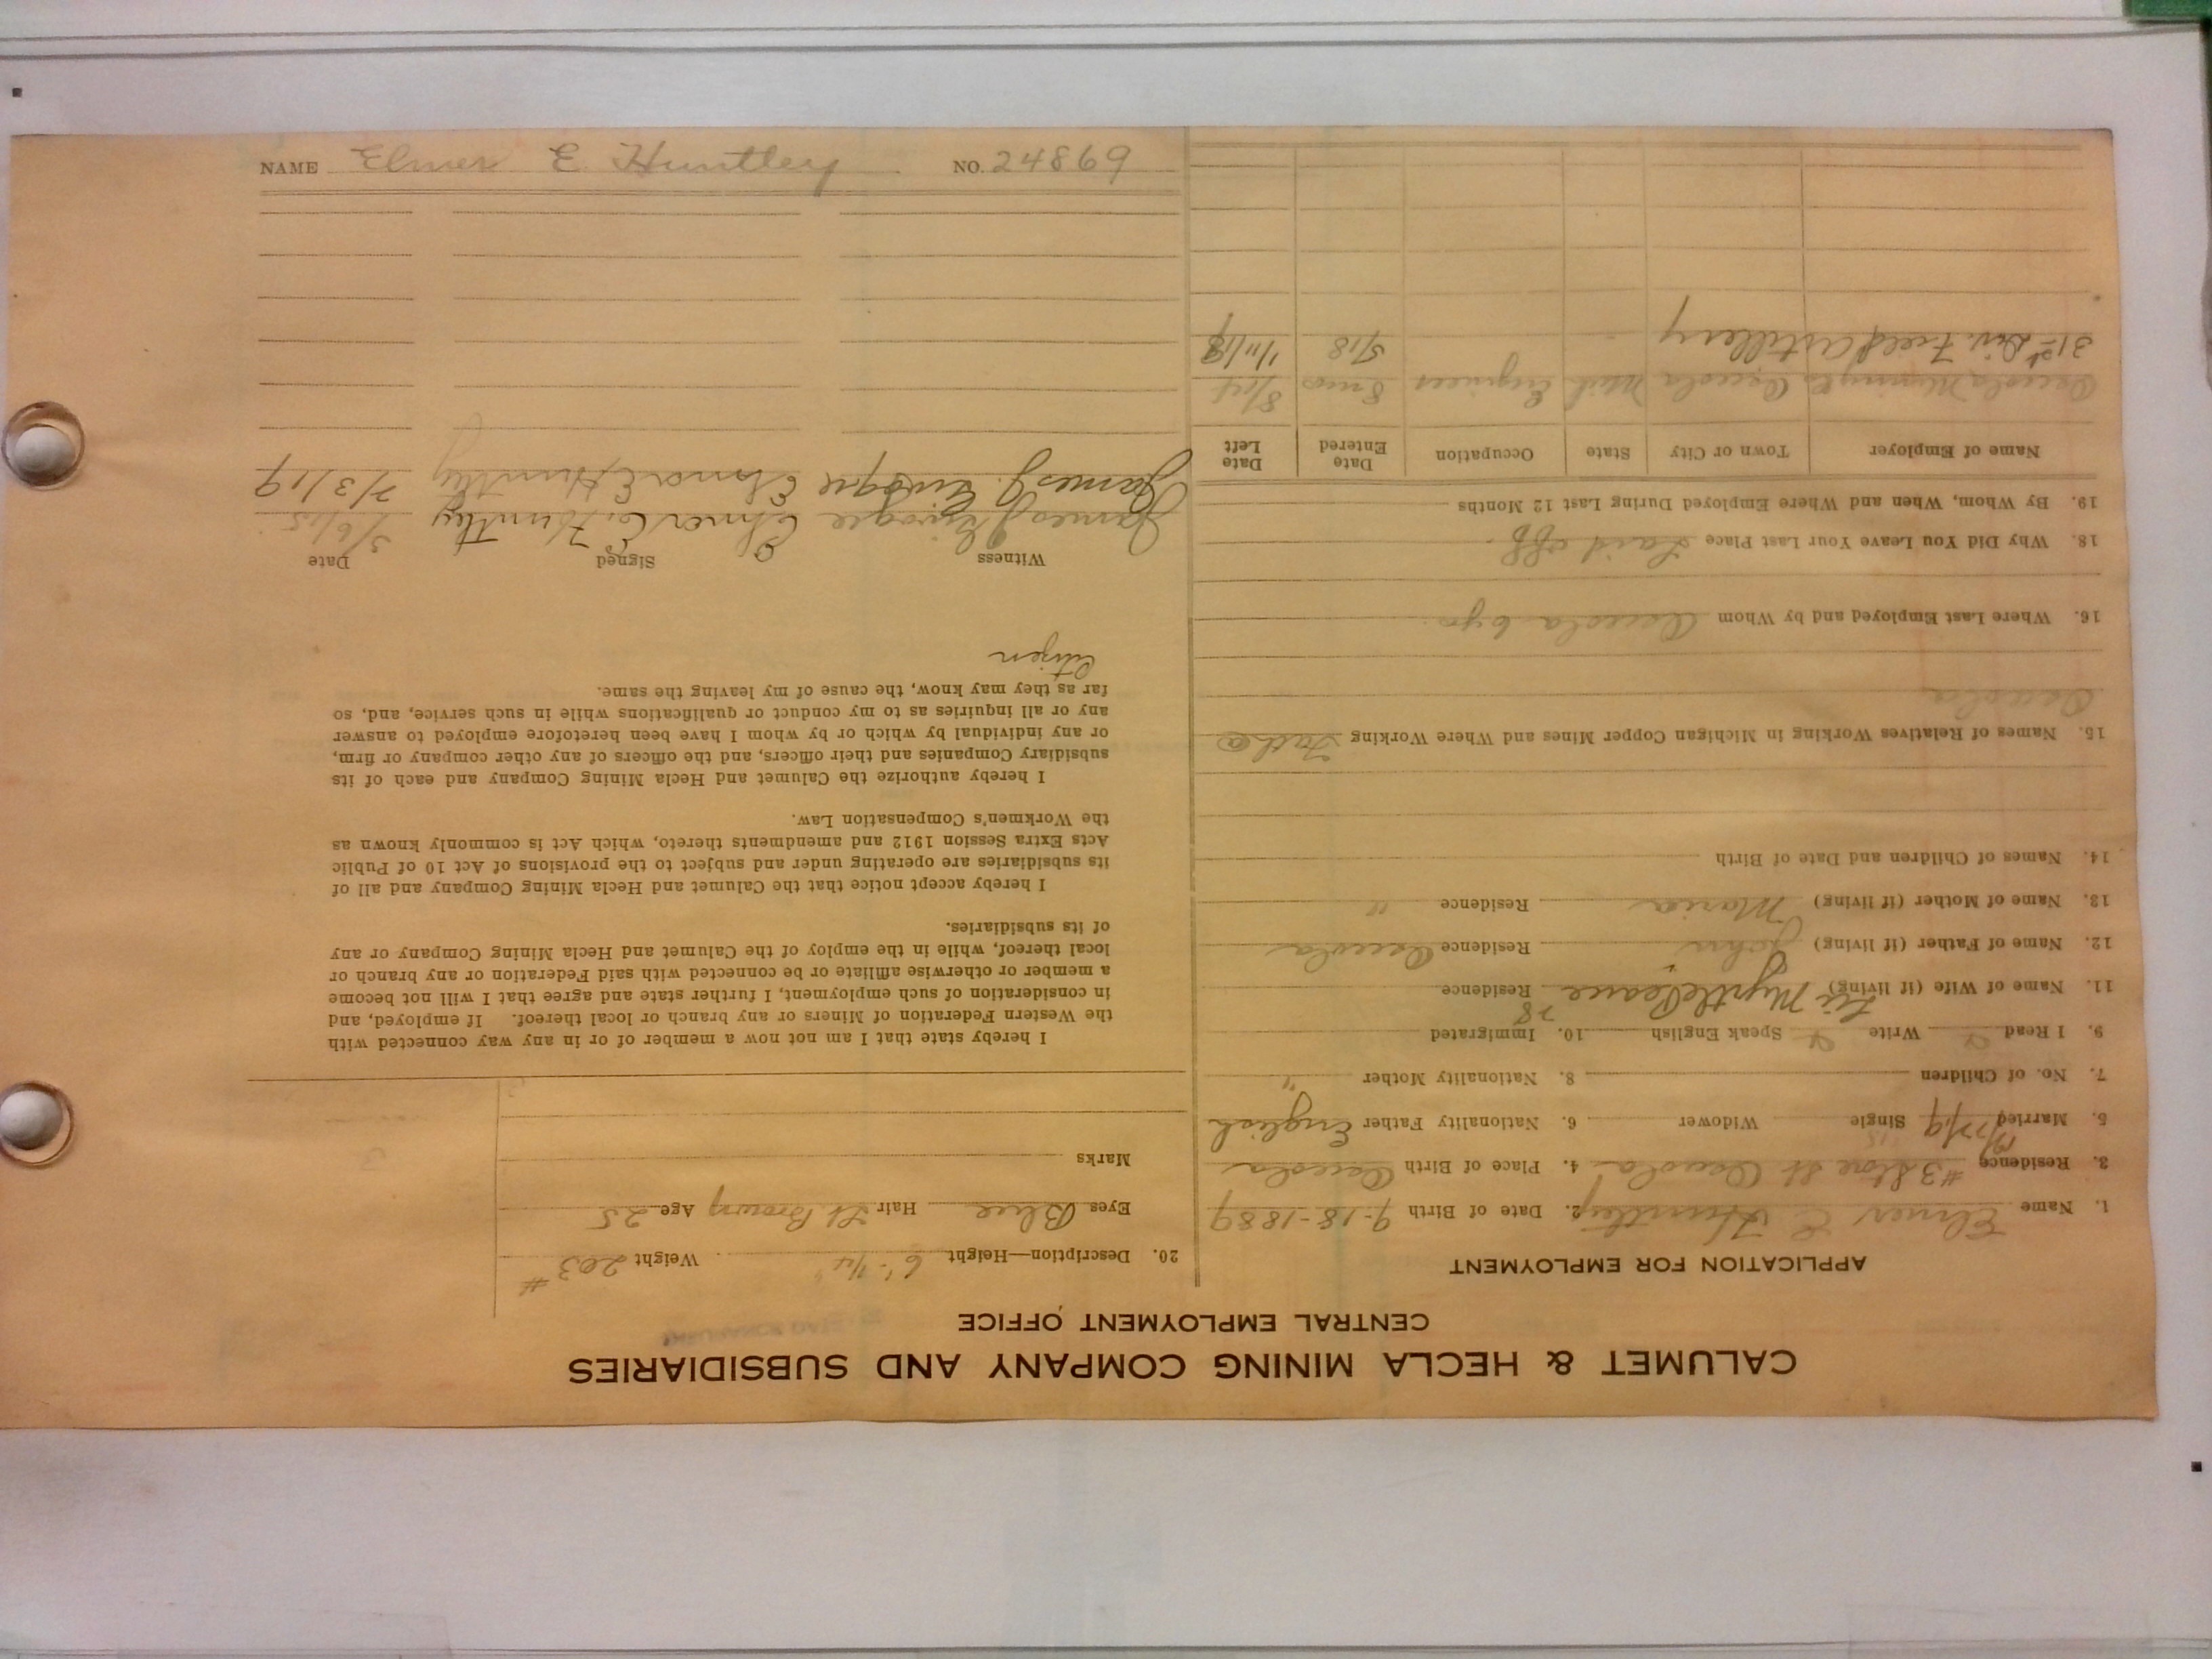 CALUMET & HECLA MINING COMPANY AND SUBSIDIARIES
CENTRAL EMPLOYMENT OFFICE
APPLICATION FOR EMPLOYMENT
1. Name Elmer E Huntley 2. Date of Birth 9-18-1889
3. Residence #3 Stone St Osceola 4. Place of Birth Osceola
5. Married Single Widower 6. Nationality Father English
7. No. of Children 8. Nationality Mother "
9. I Read Write Speak English 10. Immigrated
11. Name of Wife (if living) Myrtle Pearce Residence
12. Name of Father (if living) John Residence Osceola
13. Name of Mother (if living) Maria Residence "
14. Names of Children and Date of Birth
15. Names of Relatives Working in Michigan Copper Mines and Where Working Father
Osceola
16. Where Last Employed and by Whom Osceola 6 yrs.
18. Why Did You Leave Your Last Place Laid off.
19. By Whom, When and Where Employed During Last 12 Months
Name of Employer Town or City State Occupation Date Entered Date Left
Osceola Osceola Mich Engineer 8/14
31st Div. Field Artillery 5/18 1/11/19
20. Description—Height Weight 203#
Eyes Blue Hair Lt Brown Age 25
Marks
I hereby state that I am not now a member of or in any way connected with
the Western Federation of Miners or any branch or local thereof. If employed, and
in consideration of such employment, I further state and agree that I will not become
a member or otherwise affiliate or be connected with said Federation or any branch or
local thereof, while in the employ of the Calumet and Hecla Mining Company or any
of its subsidiaries.
I hereby accept notice that the Calumet and Hecla Mining Company and all of
its subsidiaries are operating under and subject to the provisions of Act 10 of Public
Acts Extra Session 1912 and amendments thereto, which Act is commonly known as
the Workmen's Compensation Law.
I hereby authorize the Calumet and Hecla Mining Company and each of its
subsidiary Companies and their officers, and the officers of any other company or firm,
or any individual by which or by whom I have been heretofore employed to answer
any or all inquiries as to my conduct or qualifications while in such service, and, so
far as they may know, the cause of my leaving the same.
Citizen
Witness Signed Date
James J Elmer E. Huntley 3/6/15
James J. Elmer E Huntley 2/3/19
NAME Elmer E Huntley NO. 24869